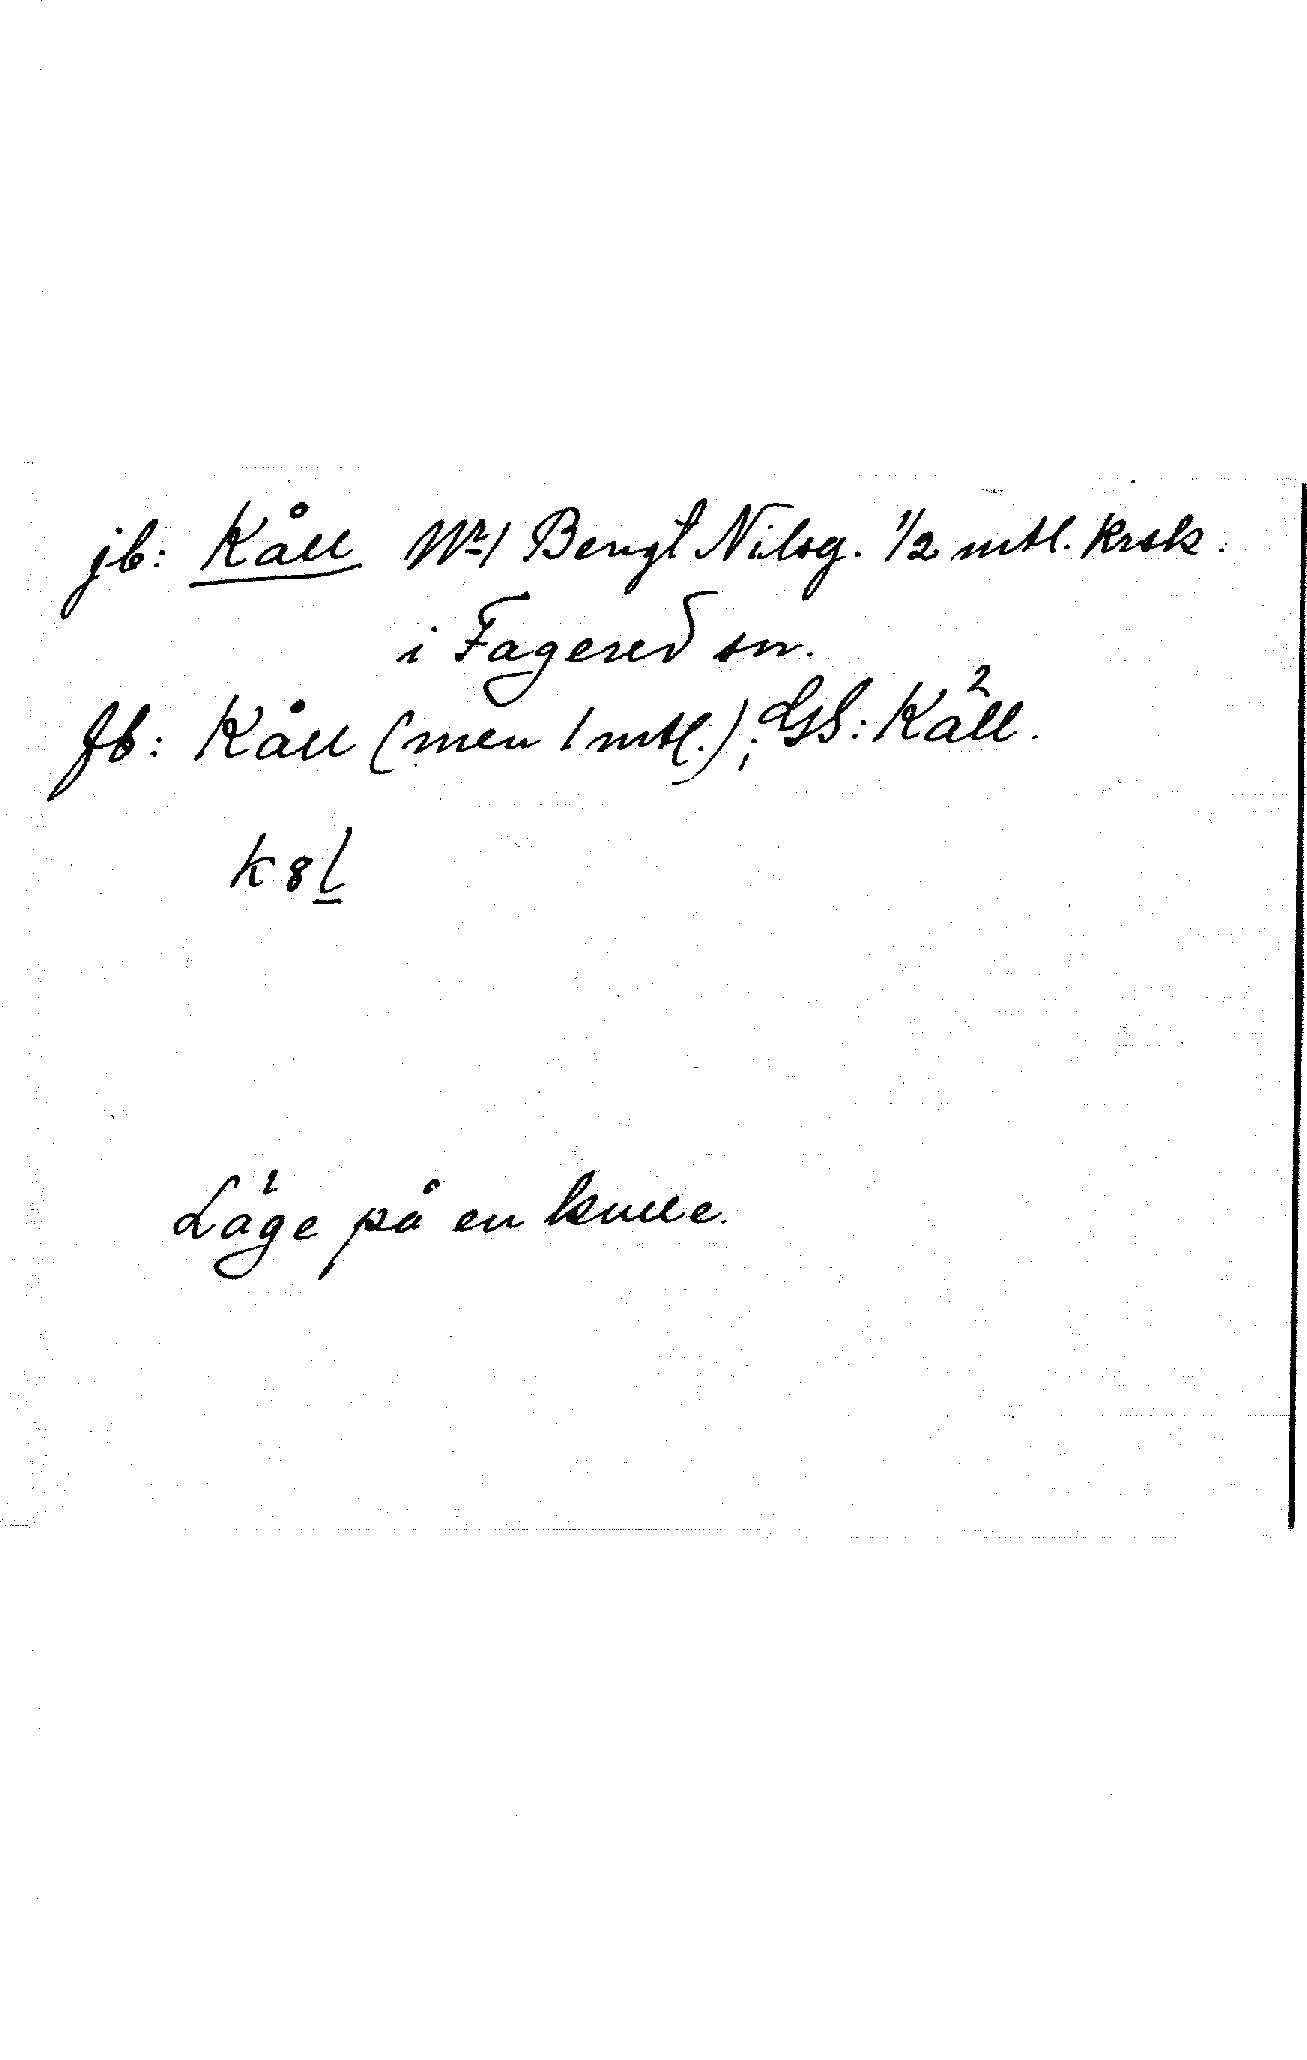 jb: Kåll No1 Bengt Nilsg. 1/2 mtl. krsk.
i Fagered sn.
fb: Kåll (men 1 mtl.); GS: Käll.
k8l
Läge på en kulle.